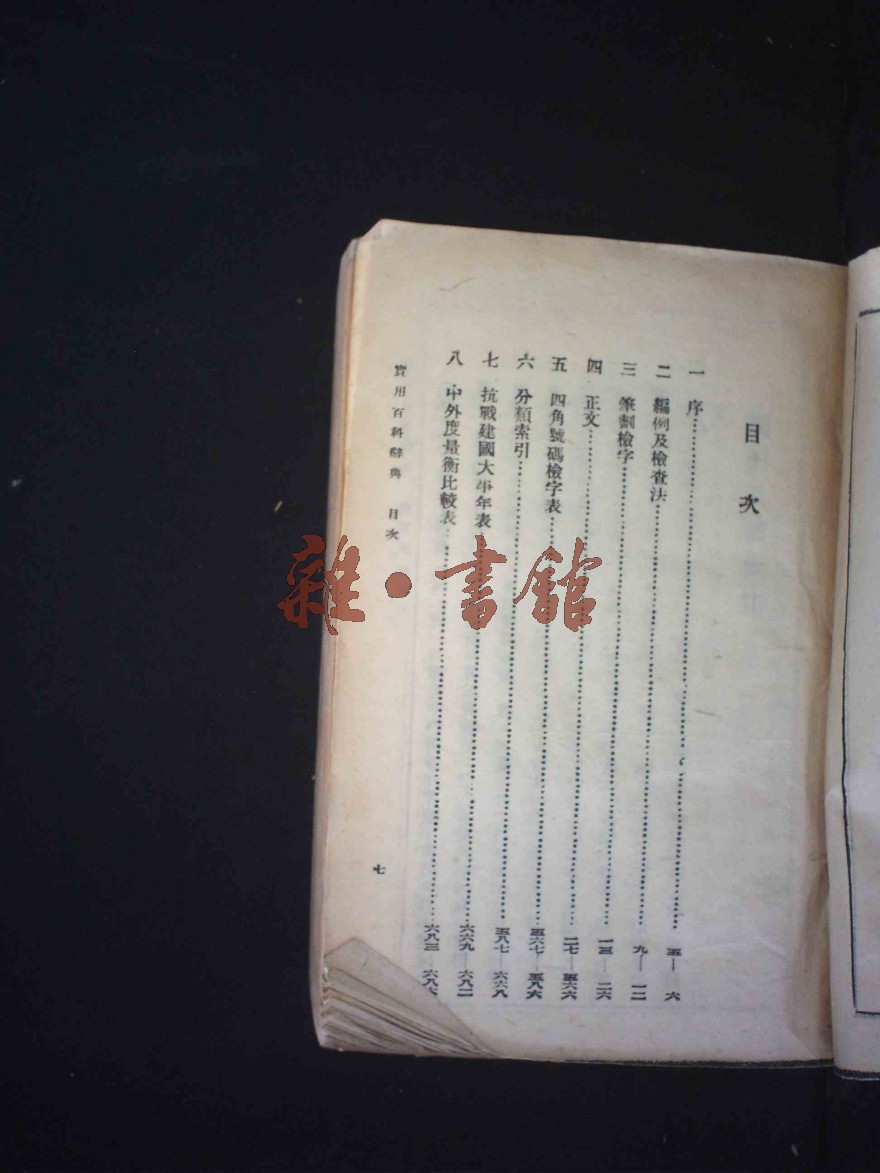 目次
一 序 五—六
二 編例及檢查法 九—一二
三 筆劃檢字 一三—二六
四 正文 二七—五六六
五 四角號碼檢字表 五六七—五八六
六 分類索引 五八七—六六八
七 抗戰建國大事年表 六六九—六八二
八 中外度量衡比較表 六八三—六八六
實用百科辭典 目次
七
雜·書館